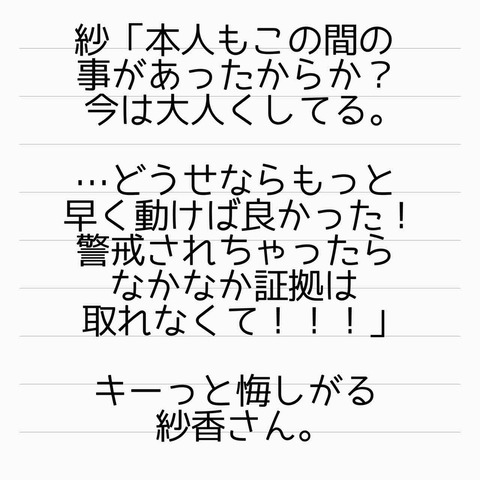 紗「本人もこの間の
事があったからか？
今は大人くしてる。
…どうせならもっと
早く動けば良かった！
警戒されちゃったら
なかなか証拠は
取れなくて！！！」
キーっと悔しがる
紗香さん。